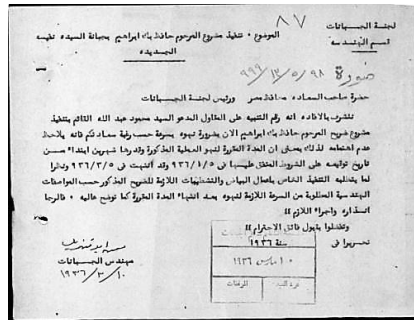 لجنة الجبانات
قسم الهندسه
٨٧
الموضوع ، تنفيذ مشروع المرحوم حافظ بك ابراهيم بجبانة السيده نفيسه
الجديده
صورة
حضرة صاحب السعاده محافظ مصر ورئيس لجنة الجبانات
نتشرف بالافاده انه رغم التنبيه على المقاول المدعو السيد محمود عبد الله القائم بتنفيذ
مشروع ضريح المرحوم حافظ بك ابراهيم الان بضرورة نهوه بسرعة حسب رغبة سعادتكم فانه يلاحظ
عدم اهتمامه لذلك بمعنى ان المدة المقررة لنهو العملية المذكورة وقدرها شهرين ابتداء من
تاريخ توقيعه على الشروط المتفق عليها في ٩٣٦/١/٥ وقد انتهت في ٩٣٦/٣/٥ ونظرا
لما يتطلبه التنفيذ الخاص باعمال البياض والتشطيبات اللازمة للضريح المذكور حسب المواصفات
الهندسية المطلوبة من السرعة اللازمة لنهوه بعد انتهاء المدة المقررة كما توضح عاليه . فالرجا
انذاره واجراء اللازم
وتفضلوا بقبول فائق الاحترام
تحريرا في سنة ١٩٣٦
١٠ مارس ١٩٣٦
مهندس الجبانات
١٩٣٦/٣/١٠
المرفقات